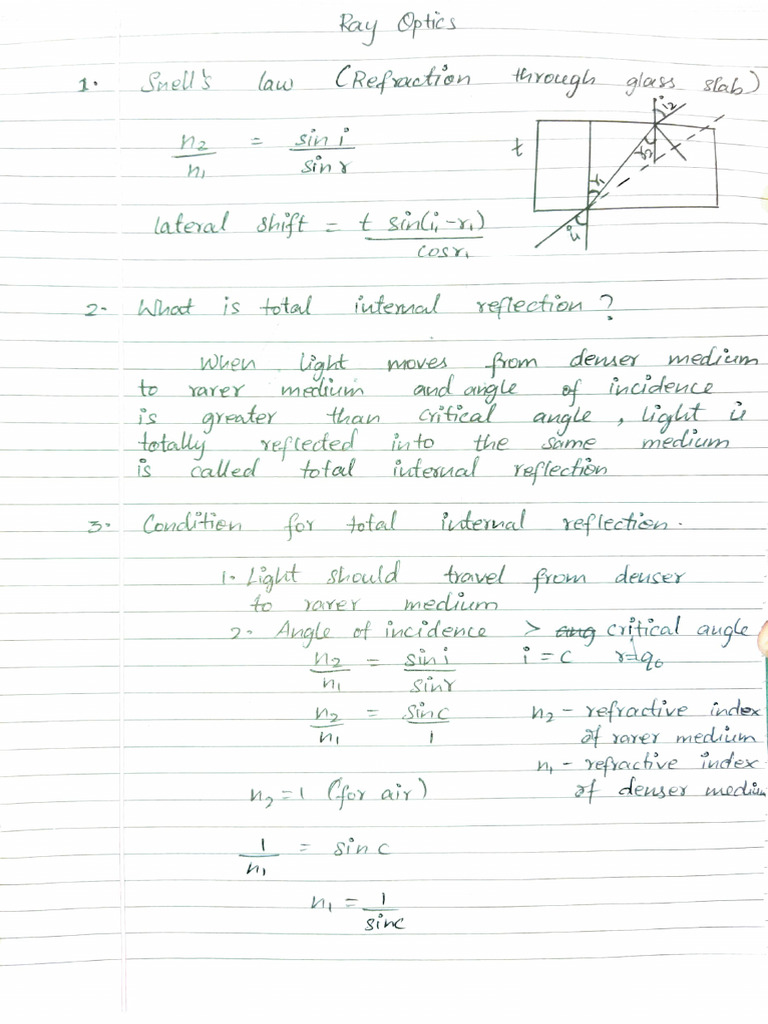 Ray Optics
1. Snell's law (Refraction through glass slab)
n₂/n₁ = sin i/sin r
t
i₂
r₂
r₁
i₁
lateral shift = t sin(i₁-r₁)/cosr₁
2. What is total internal reflection?
When light moves from denser medium
to rarer medium and angle of incidence
is greater than critical angle, light is
totally reflected into the same medium
is called total internal reflection
3. Condition for total internal reflection.
1. Light should travel from denser
to rarer medium
2. Angle of incidence > ang critical angle
n₂/n₁ = sin i/sin r i = c r=90
n₂/n₁ = sin c/1 n₂ - refractive index
of rarer medium
n₁ - refractive index
n₂ = 1 (for air) of denser medium
1/n₁ = sin c
n₁ = 1/sinc